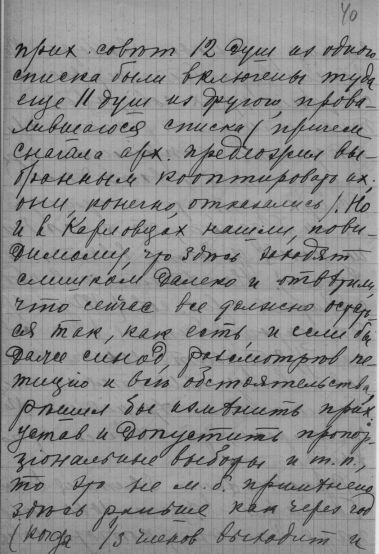 40
прих. совѣт 12 душ из одного
списка были включены туда
еще 11 душ из другого, прова-
лившагося списка (причем
сначала арх. предложил вы-
бранным кооптировать их,
они, конечно, отказались). Но
и в Карловцах нашли, пови-
димому, что здѣсь заходят
слишком далеко и отвѣтили,
что сейчас все должно остать-
ся так, как есть, и если бы
даже синод, разсмотрѣв пе-
тицію и всѣ обстоятельства,
рѣшил бы измѣнить прих.
устав и допустить пропор-
ціональные выборы и т.п.,
то это не м. б. примѣнено
здѣсь раньше как через год
(когда 1/3 членов выходит и